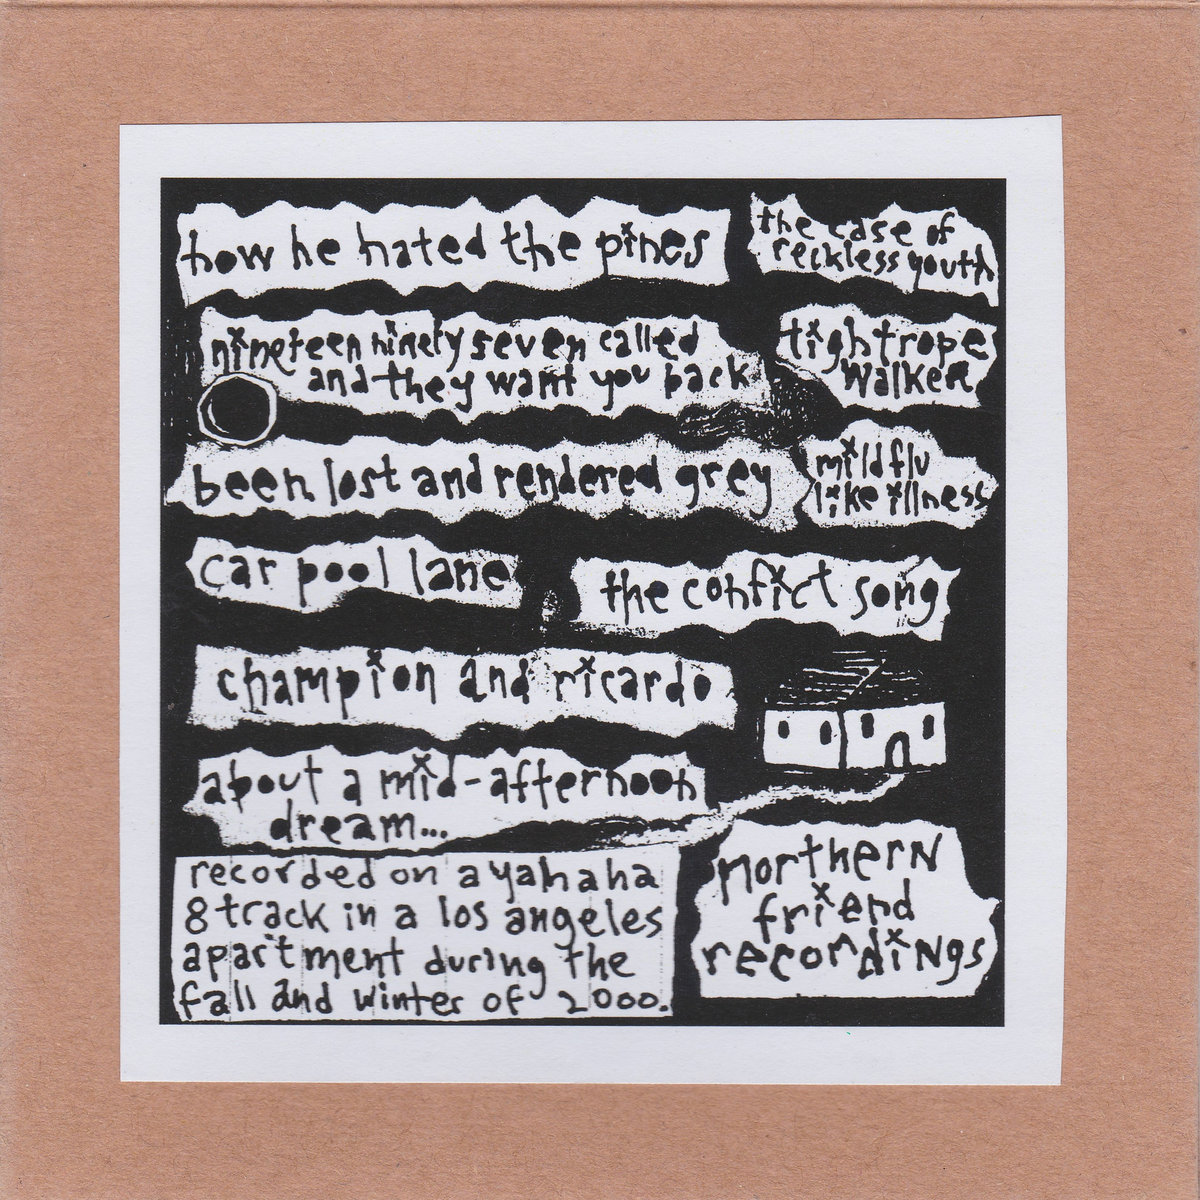 how he hated the pines
the case of
reckless youth
nineteen ninety seven called
and they want you back
tightrope
walker
been lost and rendered grey
mild flu
like illness
car pool lane
the confict song
champion and ricardo
about a mid-afternoon
dream...
recorded on a yahaha
8 track in a los angeles
apartment during the
fall and winter of 2000.
northern
friend
recordings